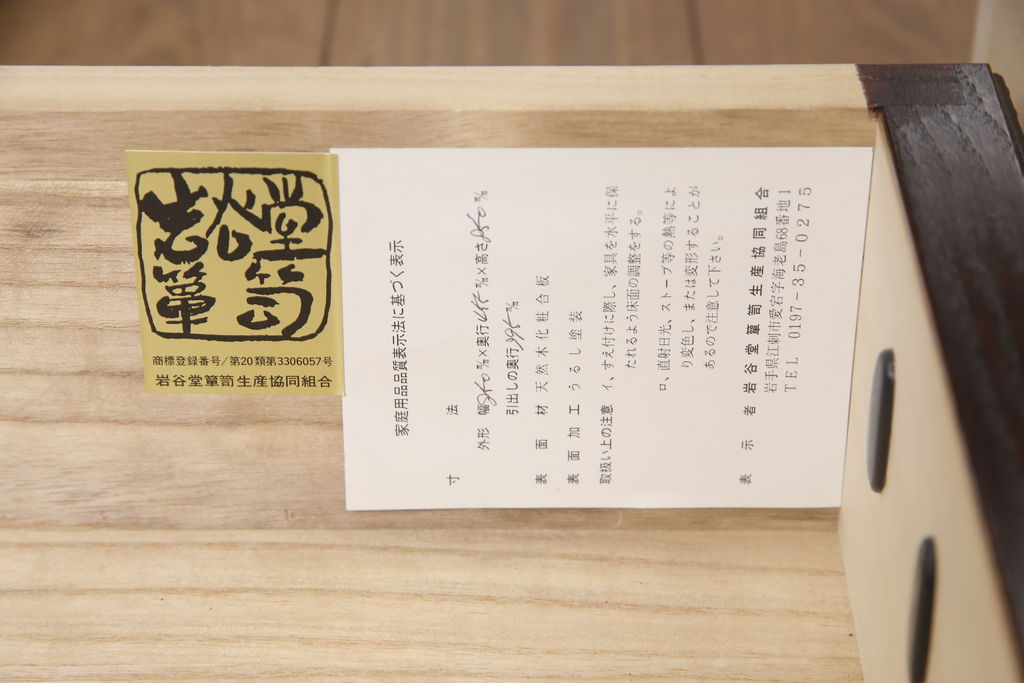 岩谷堂
簞笥
商標登録番号/第20類第3306057号
岩谷堂簞笥生産協同組合
家庭用品品質表示法に基づく表示
寸法
外形 幅 ㎜×奥行 ㎜×高さ ㎜
引出しの奥行395㎜
表面材 天然木化粧合板
表面加工 うるし塗装
取扱い上の注意 イ、すえ付けに際し、家具を水平に保
たれるよう床面の調整をする。
ロ、直射日光、ストーブ等の熱等によ
り変色し、または変形することが
あるので注意して下さい。
表示者 岩谷堂簞笥生産協同組合
岩手県江刺市愛宕字海老島68番地1
TEL 0197-35-0275